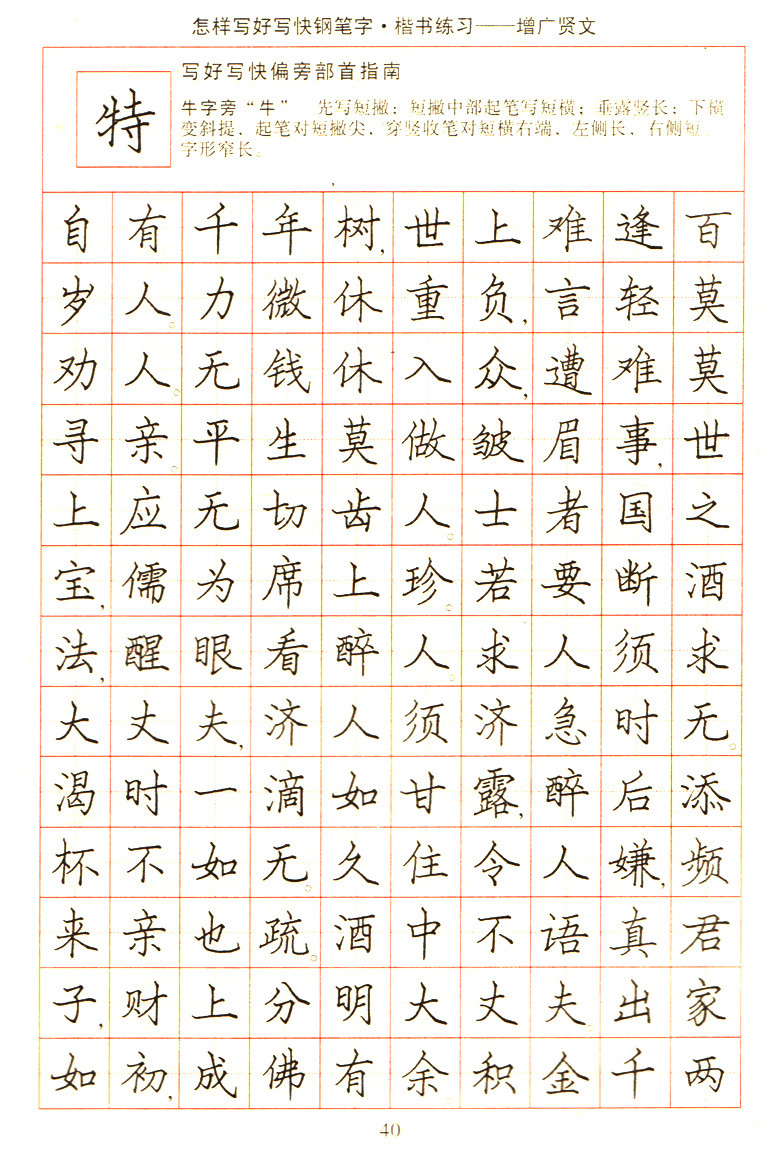 怎样写好写快钢笔字·楷书练习——增广贤文
特
写好写快偏旁部首指南
牛字旁“牜” 先写短撇；短撇中部起笔写短横；垂露竖长；下横
变斜提，起笔对短撇尖，穿竖收笔对短横右端，左侧长，右侧短，
字形窄长。
自有千年树,世上难逢百
岁人。力微休重负,言轻莫
劝人。无钱休入众,遭难莫
寻亲。平生莫做皱眉事,世
上应无切齿人。士者国之
宝,儒为席上珍。若要断酒
法,醒眼看醉人。求人须求
大丈夫,济人须济急时无。
渴时一滴如甘露,醉后添
杯不如无。久住令人嫌,频
来亲也疏。酒中不语真君
子,财上分明大丈夫。出家
如初,成佛有余。积金千两
40